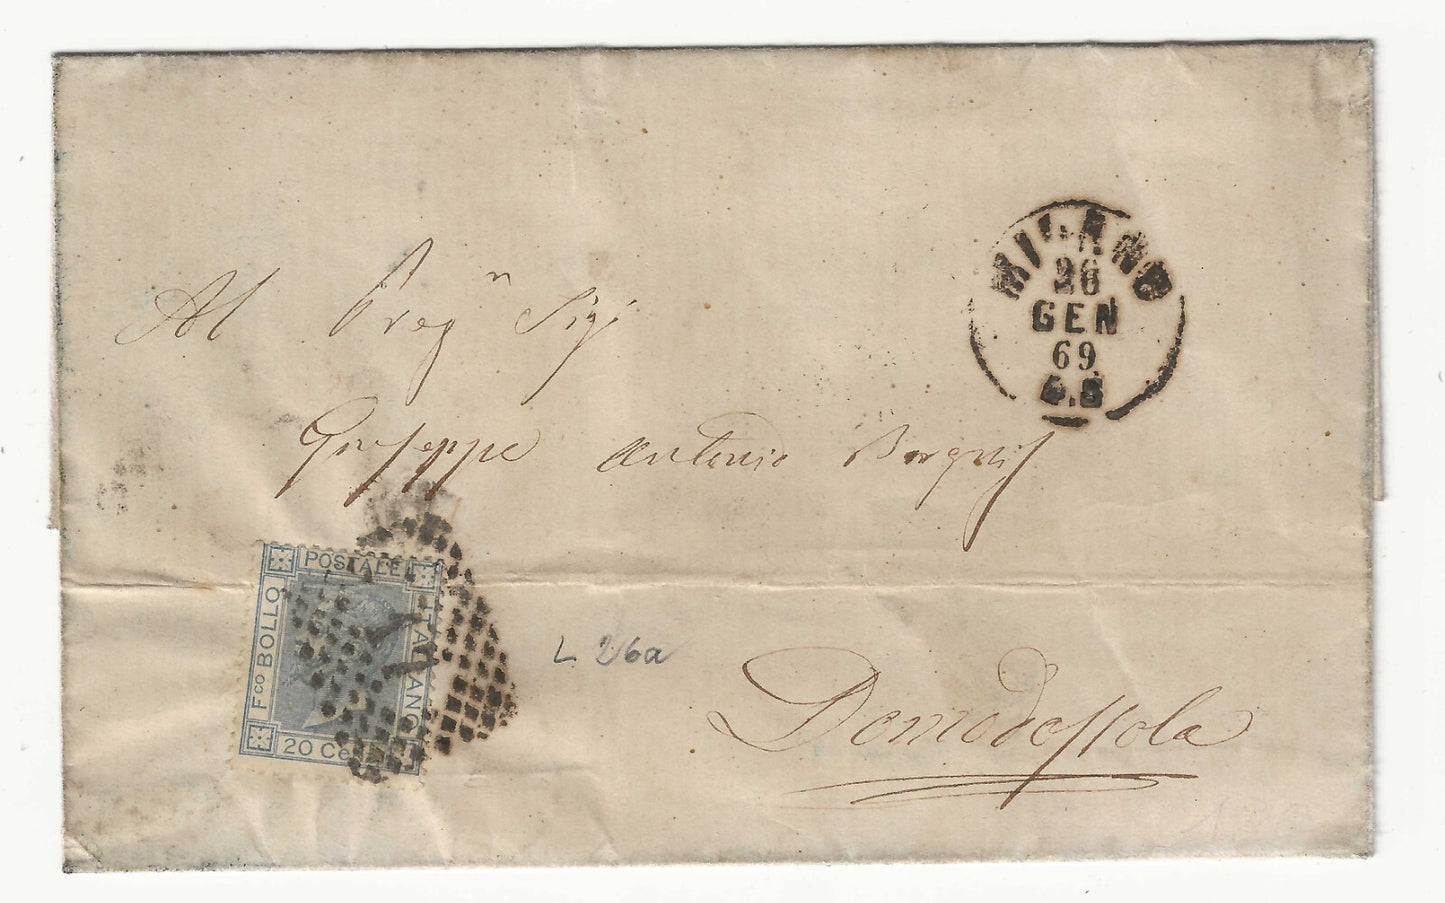 MILANO
26
GEN
69
Al Pregn Sigr
Giuseppe Antonio Borgnis
POSTALE
Fco BOLLO
ITALIANO
20 Ce
L 26a
Domodossola